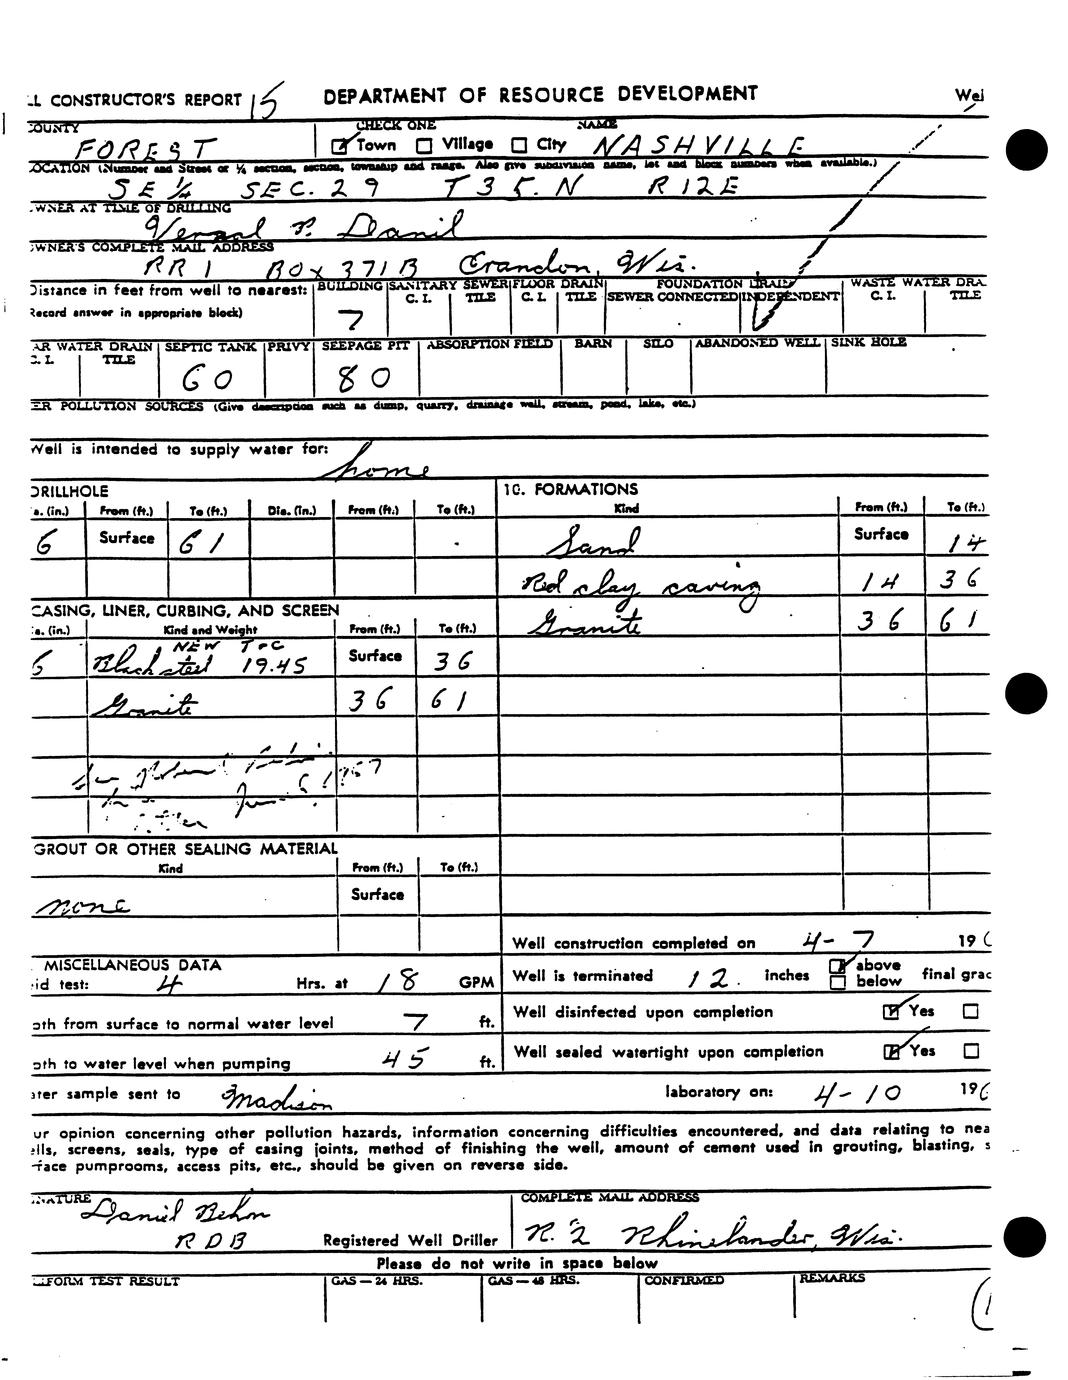 LL CONSTRUCTOR'S REPORT 15 DEPARTMENT OF RESOURCE DEVELOPMENT Wel
COUNTY CHECK ONE NAME
FOREST Town Village City NASHVILLE
LOCATION (Number and Street or ¼ section, section, township and range. Also give subdivision name, lot and block numbers when available.)
SE ¼ SEC. 29 T 35. N R12E
OWNER AT TIME OF DRILLING
P. Danil
OWNER'S COMPLETE MAIL ADDRESS
RR1 BOX 371B Crandon, Wis.
Distance in feet from well to nearest: BUILDING SANITARY SEWER FLOOR DRAIN FOUNDATION DRAIN WASTE WATER DRA
C. I. TILE C. I. TILE SEWER CONNECTED INDEPENDENT C. I. TILE
Record answer in appropriate block) 7
AR WATER DRAIN SEPTIC TANK PRIVY SEEPAGE PIT ABSORPTION FIELD BARN SILO ABANDONED WELL SINK HOLE
C. I. TILE
60 80
ER POLLUTION SOURCES (Give description such as dump, quarry, drainage well, stream, pond, lake, etc.)
Well is intended to supply water for: home
DRILLHOLE 10. FORMATIONS
a. (in.) From (ft.) To (ft.) Dia. (in.) From (ft.) To (ft.) Kind From (ft.) To (ft.)
6 Surface 61 Sand Surface 14
Red clay caving 14 36
CASING, LINER, CURBING, AND SCREEN Granite 36 61
a. (in.) Kind and Weight From (ft.) To (ft.)
NEW T&C
6 Black steel 19.45 Surface 36
Granite 36 61
GROUT OR OTHER SEALING MATERIAL
Kind From (ft.) To (ft.)
none Surface
Well construction completed on 4-7 196
MISCELLANEOUS DATA Well is terminated 12. inches above below final grac
ld test: 4 Hrs. at 18 GPM
pth from surface to normal water level 7 ft. Well disinfected upon completion Yes
pth to water level when pumping 45 ft. Well sealed watertight upon completion Yes
ater sample sent to Madison laboratory on: 4-10 196
ur opinion concerning other pollution hazards, information concerning difficulties encountered, and data relating to nea
ells, screens, seals, type of casing joints, method of finishing the well, amount of cement used in grouting, blasting, s
face pumprooms, access pits, etc., should be given on reverse side.
NATURE COMPLETE MAIL ADDRESS
Daniel Behm
RDB Registered Well Driller R. 2 Rhinelander, Wis.
Please do not write in space below
IFORM TEST RESULT GAS — 24 HRS. GAS — 48 HRS. CONFIRMED REMARKS